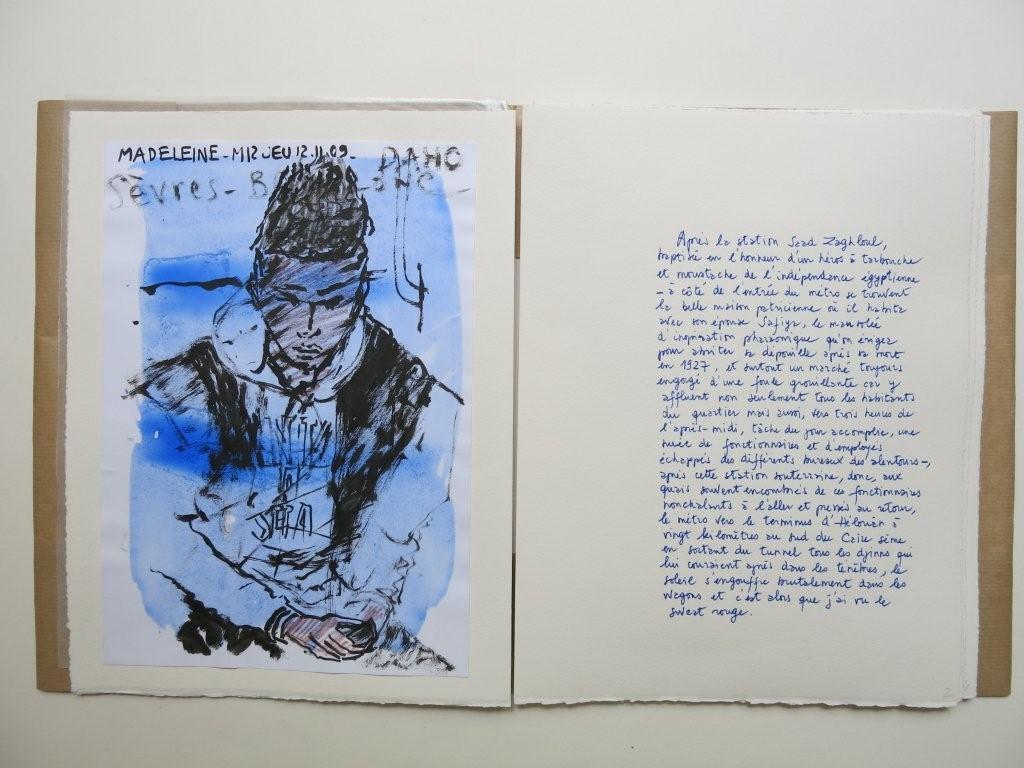 MADELEINE - M12 JEU 12.11.09 -
Sèvres-B
Après la station Saad Zaghloul,
baptisé en l'honneur d'un héros à tarbouche
et moustache de l'indépendance égyptienne
- à côté de l'entrée du métro se trouvent
la belle maison patricienne où il habita
avec son épouse Safiya, le mausolée
d'inspiration pharaonique qu'on érigea
pour abriter sa dépouille après sa mort
en 1927, et surtout un marché toujours
engagé d'une foule grouillante car y
affluent non seulement tous les habitants
du quartier mais aussi, vers trois heures de
l'après-midi, tâche du jour accomplie, une
nuée de fonctionnaires et d'employés
échappés des différents bureaux des alentours -,
après cette station souterraine, donc, aux
quais souvent encombrés de ces fonctionnaires
nonchalants à l'aller et pressés au retour,
le métro vers le terminus d'Hélouan à
vingt kilomètres au sud du Caire sème
en sortant du tunnel tous les djinns qui
lui couraient après dans les ténèbres, le
soleil s'engouffre brutalement dans les
wagons et c'est alors que j'ai vu le
sweat rouge.